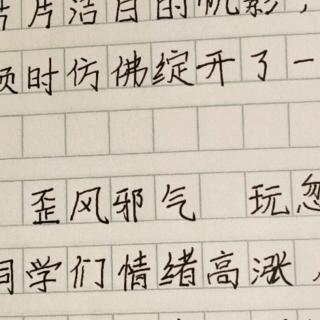 片片洁白的帆影，
顷时仿佛绽开了一
歪风邪气 玩忽
同学们情绪高涨，